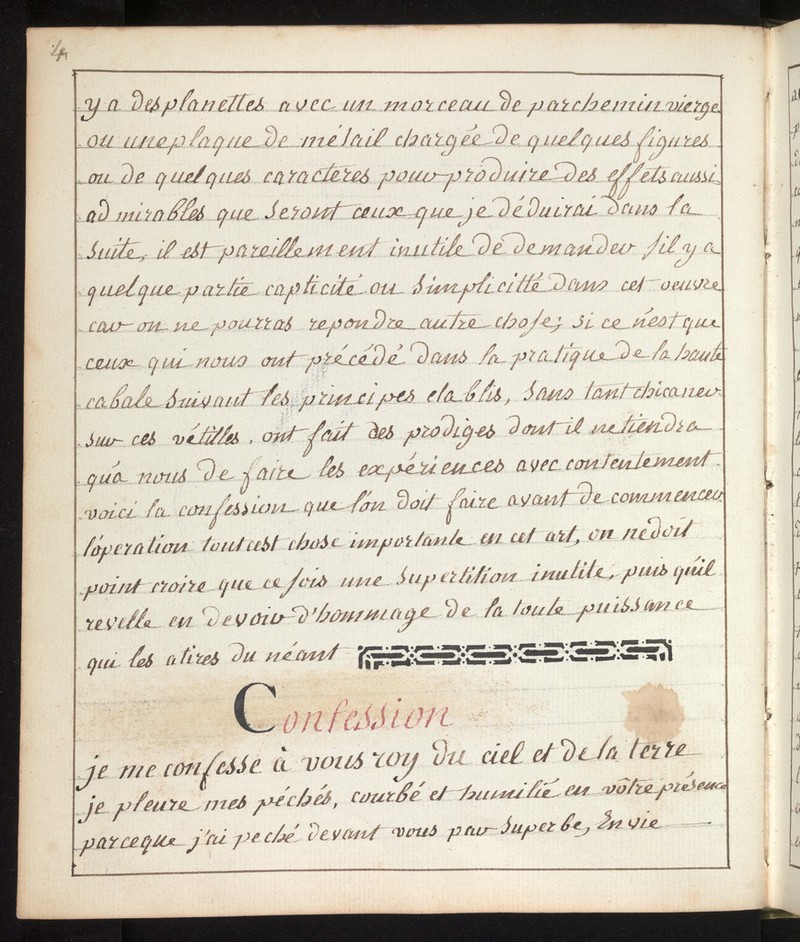 4
y a des planettes avec un morceau de parchemin vierge
ou une plaque de métail chargée de quelques figures
ou de quelques caracteres pour produire des effets aussi
admirables que seront ceux que je déduirai dans la
suite, il est pareillement inutile de demander s'il y a
quelque partie capticité ou simplicitté dans cet oeuvre
car on ne pourras repondre autre chose; si ce n'est que
ceux qui nous ont précédé dans la pratique de la haute
cabale suivant les principes etablis, sans tant chicaner
sur ces vétilles, ont fait des prodiges dont il ne tiendra
qu'a nous de faire les expériences avec contentement.
voici la confession que l'on doit faire avant de commencer
l'operation tout cest chose importante en cet art, on ne doit
point croire que ce sois une supertition inutile, puis qu'il
revelle en devoir d'hommage de la toute puissance
qui les atires du néant
Confession
je me confesse à vous roy du ciel et de la terre
je pleure mes péchés, courbé et humilié en vôtre présence
parceque j'ai peché devant vous par superbe, Envie